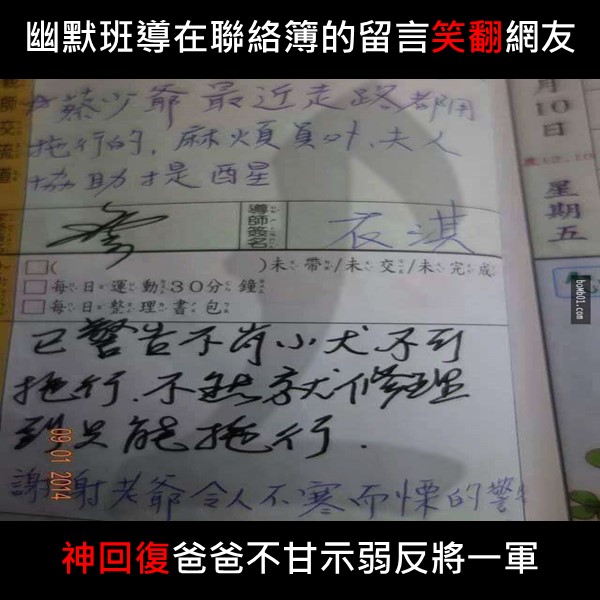 幽默班導在聯絡簿的留言笑翻網友
蔡少爺最近走路都用
拖行的,麻煩員外、夫人
協助提醒
月10日
星期五
導師簽名
衣淇
□( )未帶/未交/未完成
□每日運動30分鐘
□每日整理書包
已警告不肖小犬不可
拖行.不然就修理
到只能拖行.
謝謝老爺令人不寒而慄的警告
09 01 2014
bomb01.com
神回復爸爸不甘示弱反將一軍